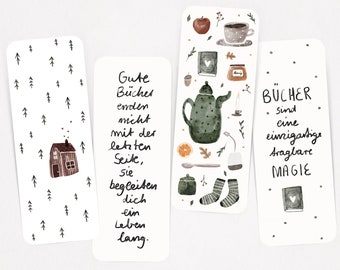 Gute
Bücher
enden
nicht
mit der
letzten
Seite,
sie
begleiten
dich
ein
Leben
lang.
BÜCHER
sind
eine
einzigartige
tragbare
MAGIE